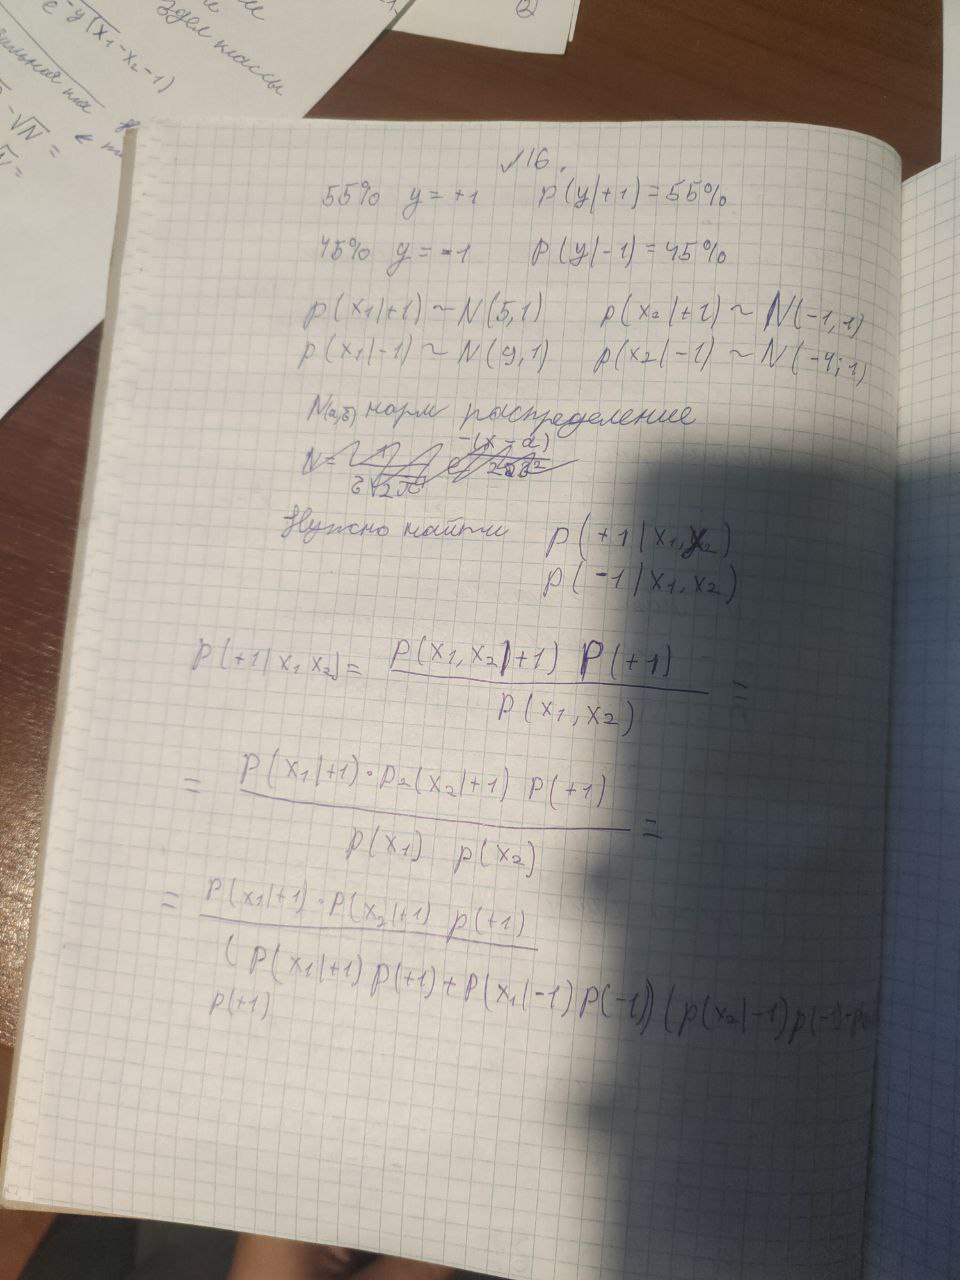 ②
e^-y(x₁-x₂-1)
√16.
55% y = +1 p(y|+1) = 55%
45% y = -1 p(y|-1) = 45%
p(x₁|+1) ~ N(5,1) p(x₂|+1) ~ N(-1,1)
p(x₁|-1) ~ N(9,1) p(x₂|-1) ~ N(-4;1)
норм распределение
Нужно найти p(+1|x₁,x₂)
p(-1|x₁,x₂)
p(+1|x₁x₂) = p(x₁,x₂|+1) P(+1) =
p(x₁,x₂)
= p(x₁|+1)·p₂(x₂|+1) p(+1) =
p(x₁) p(x₂)
= p(x₁|+1)·p(x₂|+1) p(+1)
(p(x₁|+1)p(+1)+p(x₁|-1)p(-1))(p(x₂|-1)p(-1)+
p(+1)